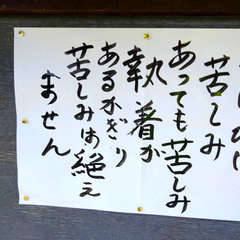 苦しみ
あっても苦しみ
執着が
あるかぎり
苦しみは絶え
ません